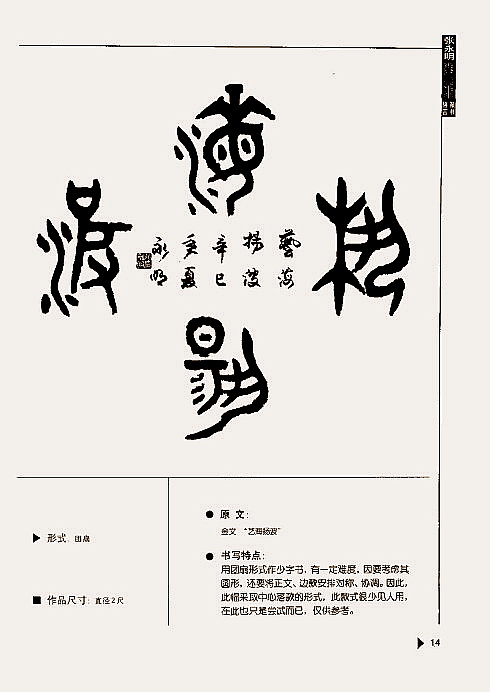 张永明
藝海
揚波
辛巳
孟夏
永明
▶ 形式：团扇
■ 作品尺寸：直径2尺
● 原 文：
金文 “艺海扬波”
● 书写特点：
用团扇形式作少字书，有一定难度，因要考虑其
圆形，还要将正文、边款安排对称、协调。因此，
此幅采取中心落款的形式，此款式很少见人用，
在此也只是尝试而已，仅供参考。
▶ 14